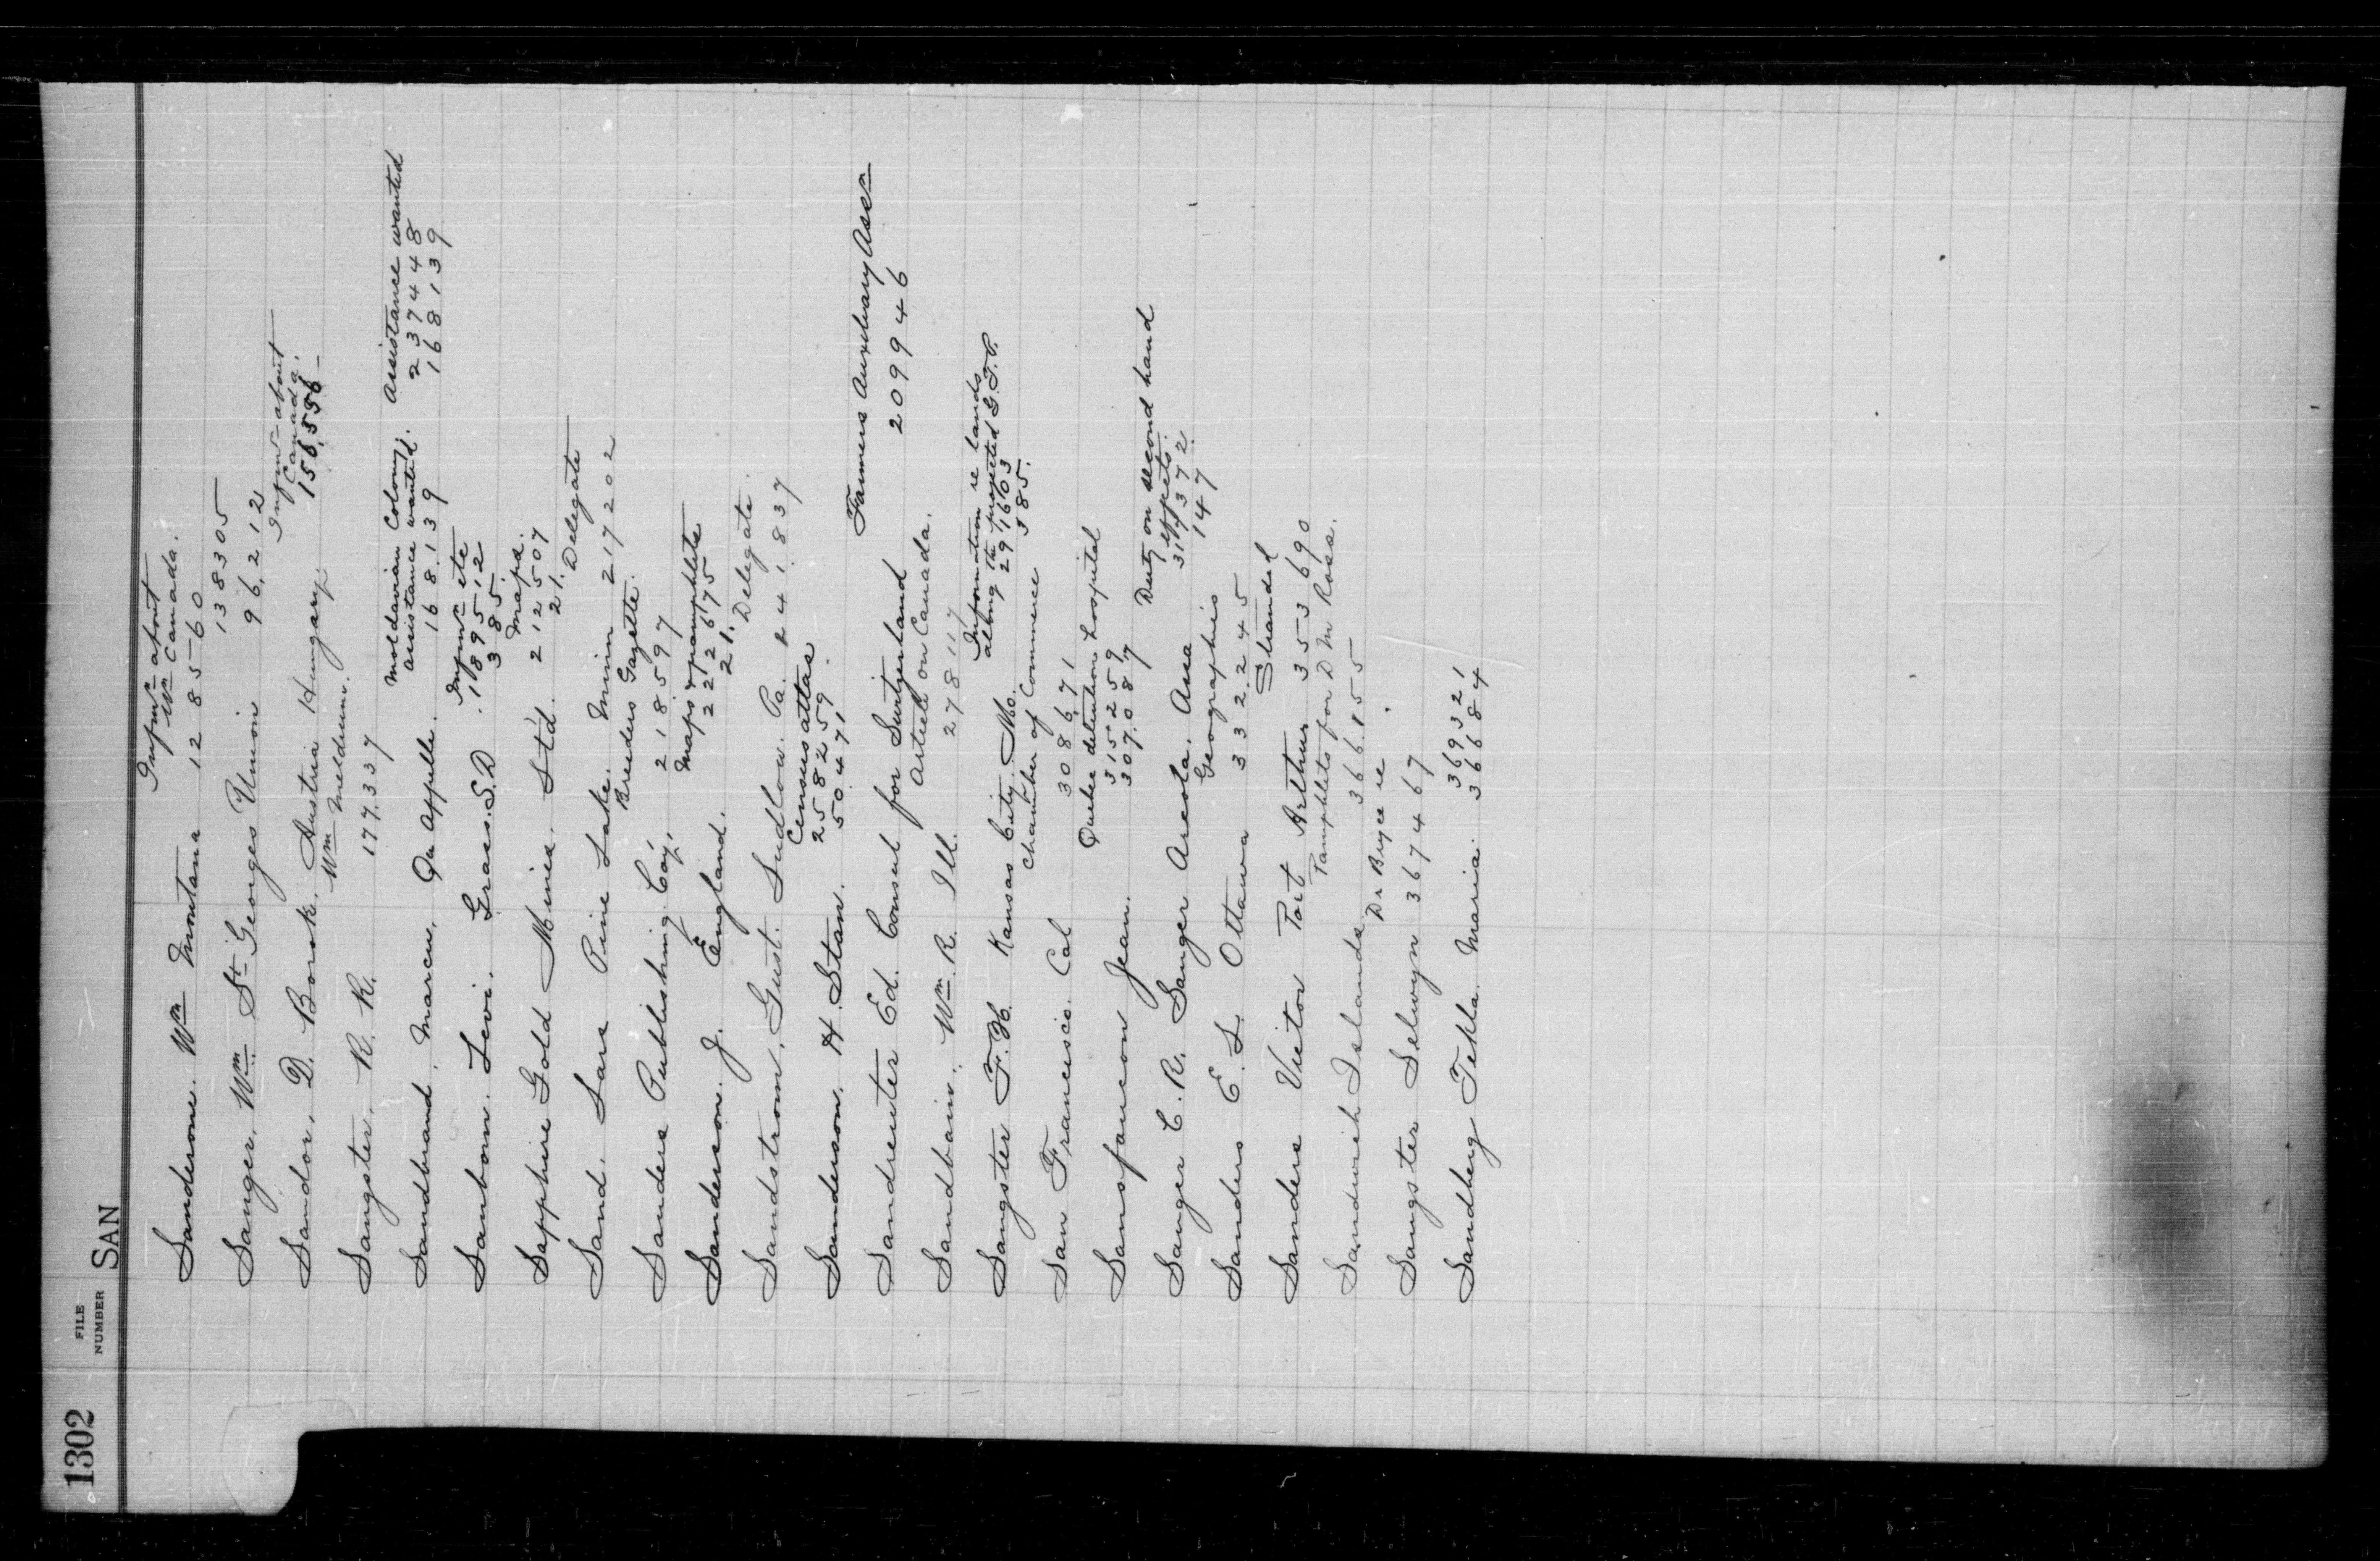 1302
FILE NUMBER
SAN
Informn about
Wn Canada.
Sandersone. Wm Montana 128560
138305
Sanger, Wm. St. Georges Union 96,212
Informn about
Canada.
Sandor, D. Borsk. Austria Hungary. 156,556
Wm Meldrum.
Sangster, R. R. 177,337
Moldavian Colony. Assistance wanted
assistance wanted. 237448
Sandbrand, Marcu, Qu Appelle. 168,139 168139
Informn etc
189512
Sanborn. Levi. Grass. S.D 385.
Maps.
Sapphire Gold Mines. Ltd. 212507
21.
Delegate
Sand. Lars Pine Lake. Minn 217202
Breeders Gazette.
Sanders Publishing Coy. 218597
Maps & pamphlets
222675
Sanderson. J. England. 21.
Delegate.
Sandstrom, Gust. Ludlow. Pa. 141.837
Census attas.
258259
Sanderson. H. Stan. 50471
Farmers Auxiliary Assn
Sandreuter Ed. Consul for Switzerland 209946
Article on Canada.
Sandbain. Wm. R. Ill. 278117
Information re lands
along the projected G.T.P.
Sangster F. H. Kansas City. Mo. 291603
Chamber of Commerce 385.
San Francisco. Cal 308671
Quebec detention hospital
315259
Sansfaucon Jean. 307.087
Duty on second hand
effects.
317372
Sanger C. R. Sanger Areola. Assa 147
Geographies
Sanders E. L. Ottawa 332245
Stranded
Sanders Victor Port Arthur 353690
Pamphlets for D M Ross.
Sandwich Islands 366155
Dr Bryce re
Sangster Selwyn 367467
369321
Sandberg Tekla. Maria. 366884